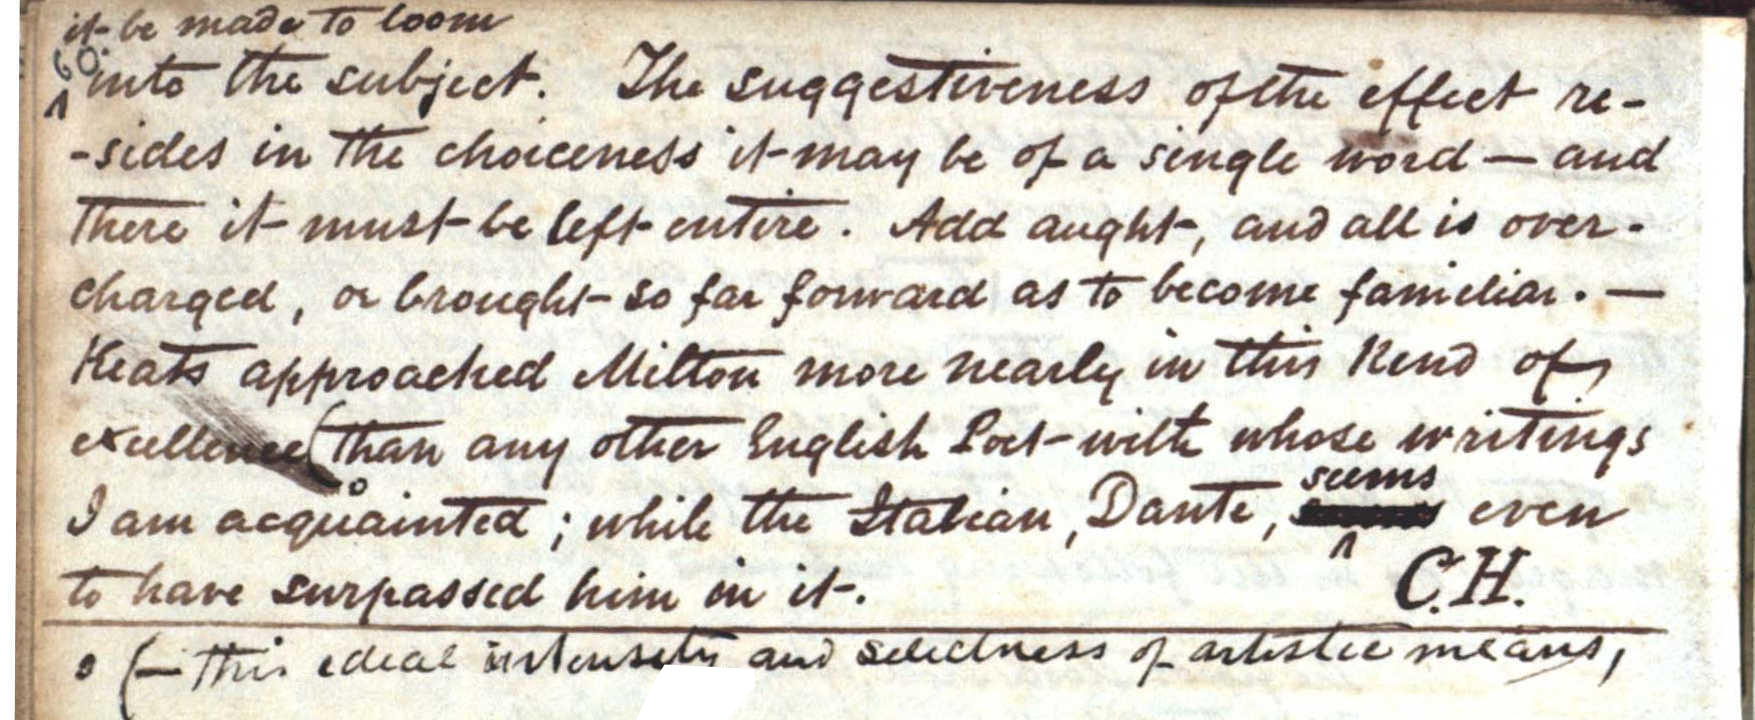 it be made to loom
into the subject. The suggestiveness of the effect re-
-sides in the choiceness it may be of a single word — and
there it must be left entire. Add aught, and all is over-
charged, or brought so far forward as to become familiar. —
Keats approached Milton more nearly in this kind of
excellence (than any other English Poet with whose writings
I am acquainted; while the Italian, Dante, seems even
to have surpassed him in it.
C.H.
o (— this ideal intensity and selectness of artistic means,